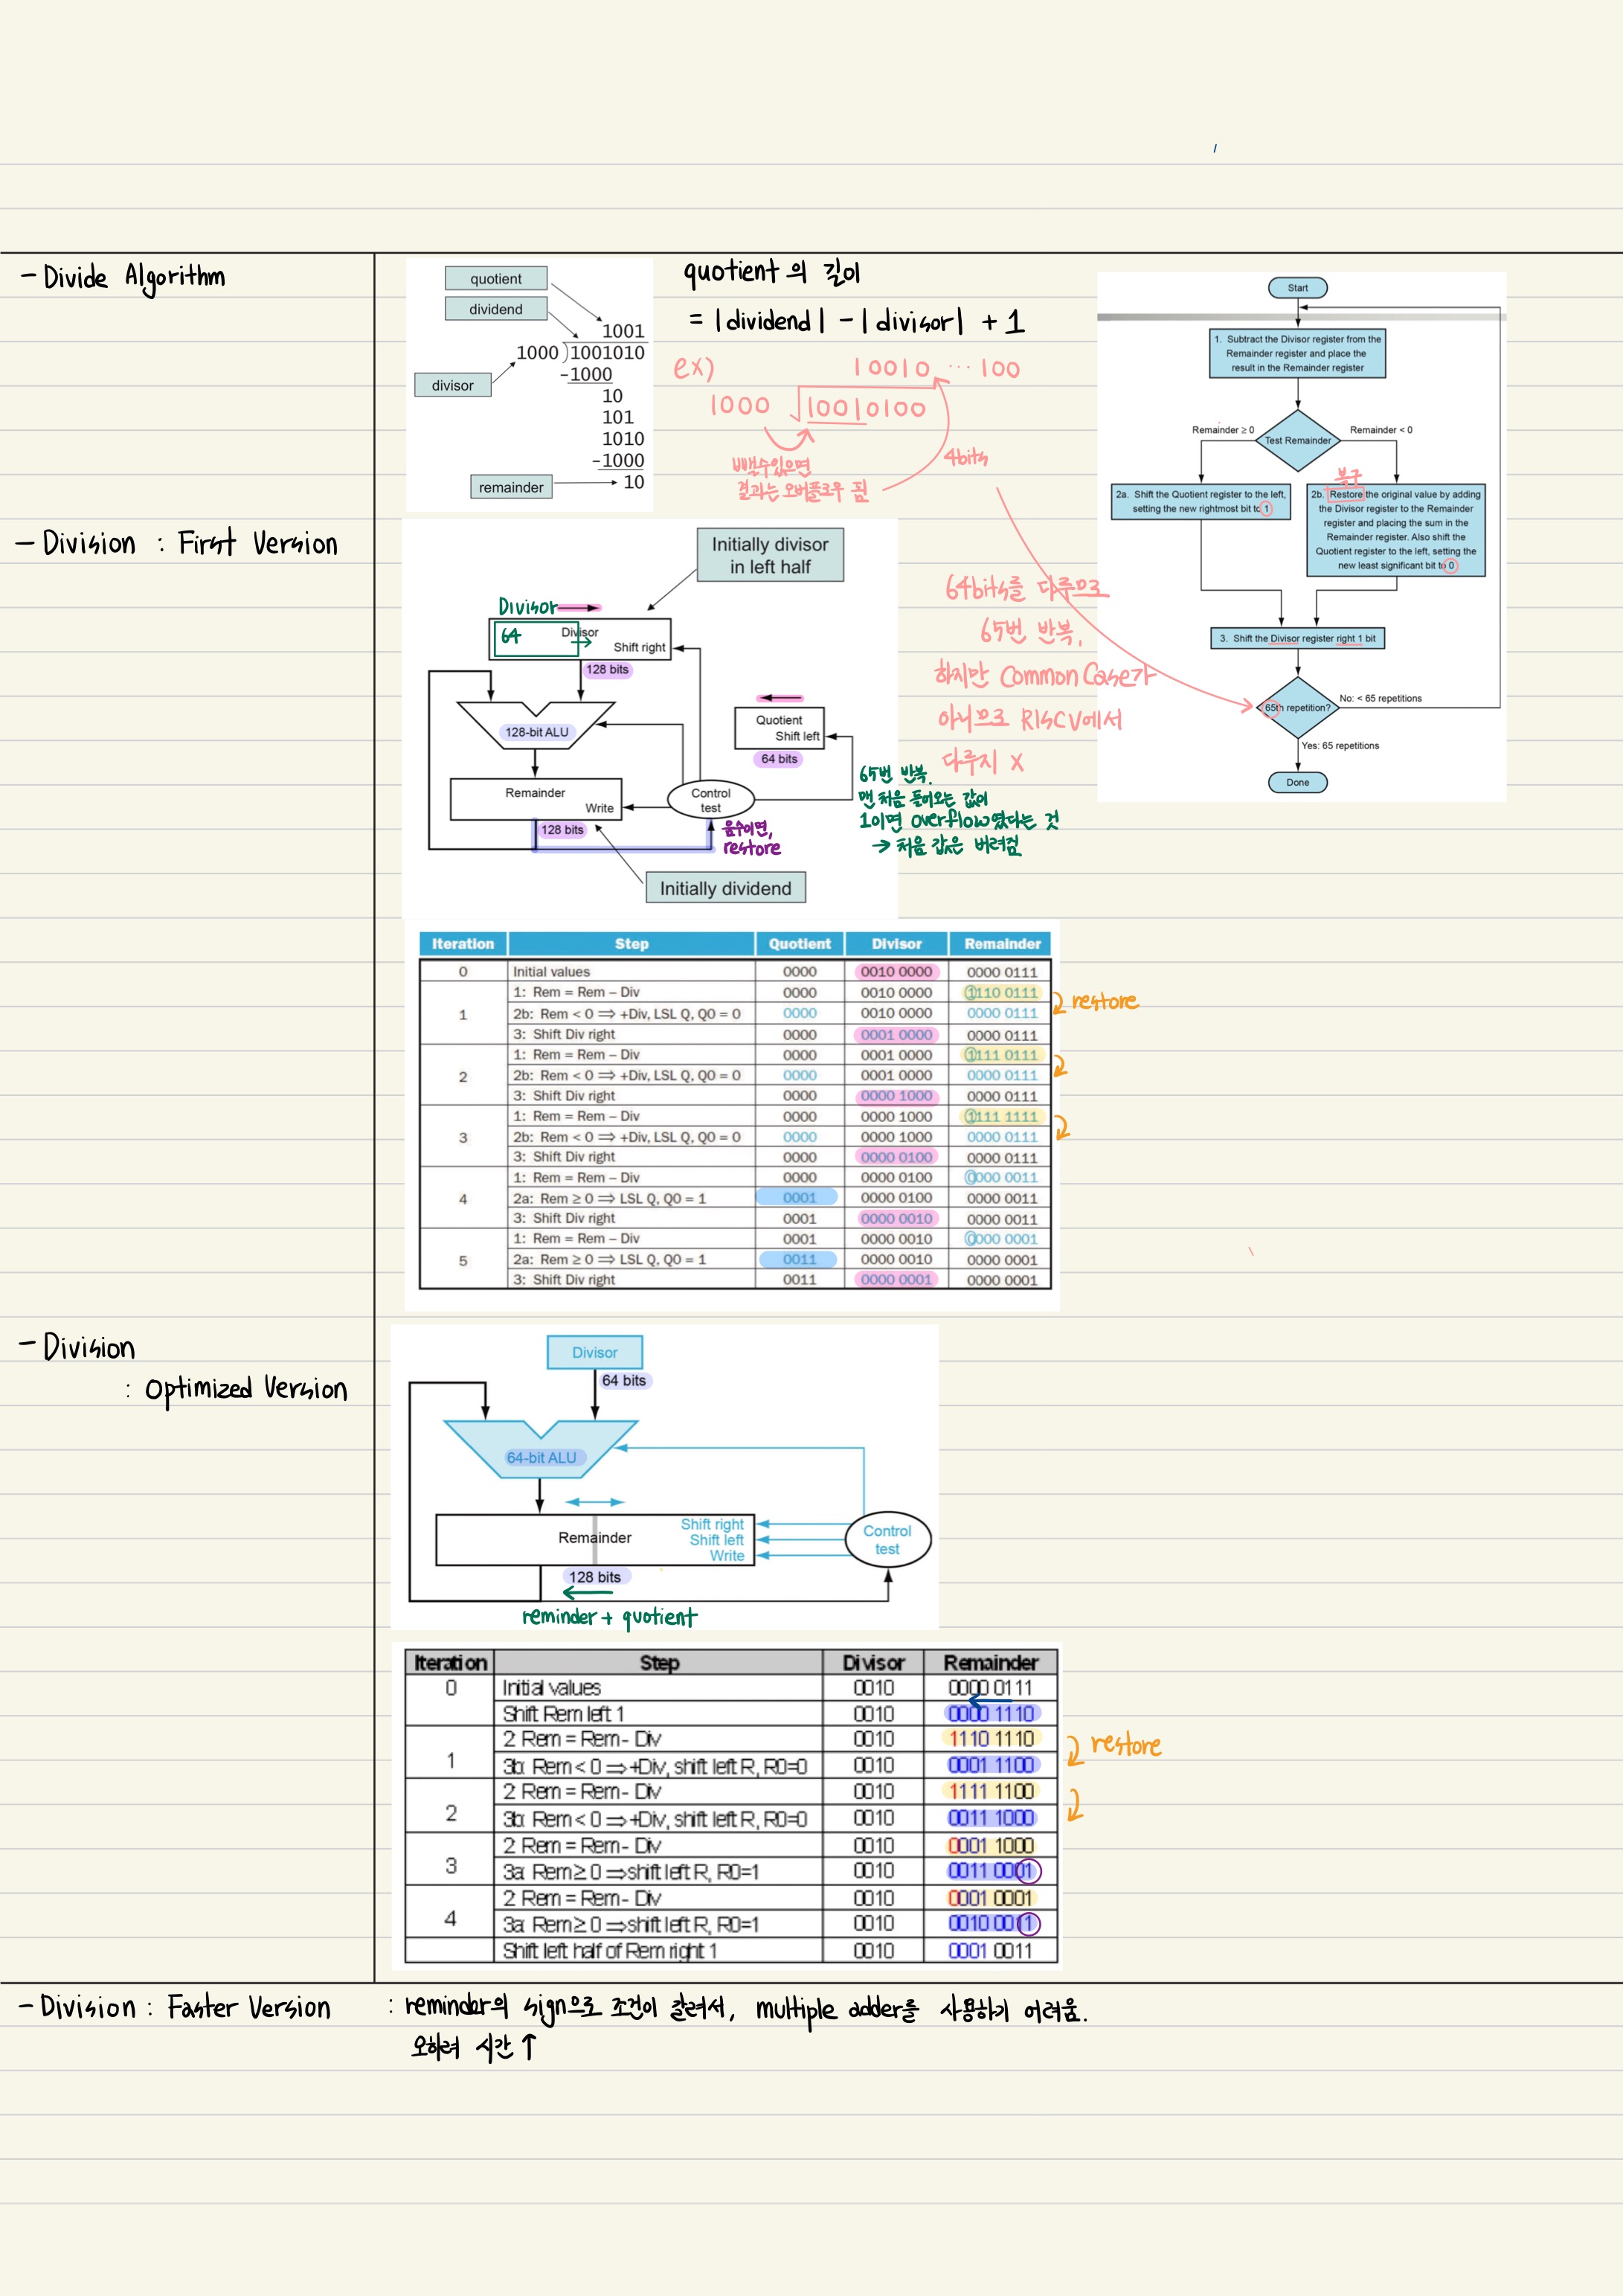 - Divide Algorithm
quotient
dividend
1001
1000 ) 1001010
-1000
divisor
10
101
1010
-1000
remainder
10
quotient의 길이
= |dividend| - |divisor| + 1
ex) 10010 ... 100
1000 √10010100
뺄수있으면
결과는 오버플로우 됨
4bits
Start
1. Subtract the Divisor register from the
Remainder register and place the
result in the Remainder register
Remainder ≥ 0
Test Remainder
Remainder < 0
복구
2a. Shift the Quotient register to the left,
setting the new rightmost bit to 1
2b. Restore the original value by adding
the Divisor register to the Remainder
register and placing the sum in the
Remainder register. Also shift the
Quotient register to the left, setting the
new least significant bit to 0
3. Shift the Divisor register right 1 bit
65th repetition?
No: < 65 repetitions
Yes: 65 repetitions
Done
64bits를 다루므로
65번 반복,
하지만 Common Case가
아니므로 RISCV에서
다루지 X
- Division : First Version
Initially divisor
in left half
Divisor
64
Divisor
Shift right
128 bits
128-bit ALU
Quotient
Shift left
64 bits
Remainder
Write
128 bits
Control
test
음수이면,
restore
65번 반복.
맨 처음 들어오는 값이
1이면 overflow였다는 것
→ 처음 값은 버려짐
Initially dividend
Iteration Step Quotient Divisor Remainder
0 Initial values 0000 0010 0000 0000 0111
1 1: Rem = Rem – Div 0000 0010 0000 1110 0111
2b: Rem < 0 ⟹ +Div, LSL Q, Q0 = 0 0000 0010 0000 0000 0111
3: Shift Div right 0000 0001 0000 0000 0111
restore
2 1: Rem = Rem – Div 0000 0001 0000 1111 0111
2b: Rem < 0 ⟹ +Div, LSL Q, Q0 = 0 0000 0001 0000 0000 0111
3: Shift Div right 0000 0000 1000 0000 0111
3 1: Rem = Rem – Div 0000 0000 1000 1111 1111
2b: Rem < 0 ⟹ +Div, LSL Q, Q0 = 0 0000 0000 1000 0000 0111
3: Shift Div right 0000 0000 0100 0000 0111
4 1: Rem = Rem – Div 0000 0000 0100 0000 0011
2a: Rem ≥ 0 ⟹ LSL Q, Q0 = 1 0001 0000 0100 0000 0011
3: Shift Div right 0001 0000 0010 0000 0011
5 1: Rem = Rem – Div 0001 0000 0010 0000 0001
2a: Rem ≥ 0 ⟹ LSL Q, Q0 = 1 0011 0000 0010 0000 0001
3: Shift Div right 0011 0000 0001 0000 0001
- Division
: Optimized Version
Divisor
64 bits
64-bit ALU
Remainder
Shift right
Shift left
Write
Control
test
128 bits
reminder + quotient
Iteration Step Divisor Remainder
0 Initial values 0010 0000 0111
Shift Rem left 1 0010 0000 1110
1 2: Rem = Rem - Div 0010 1110 1110
3b: Rem < 0 ⟹ +Div, shift left R, R0=0 0010 0001 1100
restore
2 2: Rem = Rem - Div 0010 1111 1100
3b: Rem < 0 ⟹ +Div, shift left R, R0=0 0010 0011 1000
3 2: Rem = Rem - Div 0010 0001 1000
3a: Rem ≥ 0 ⟹ shift left R, R0=1 0010 0011 0001
4 2: Rem = Rem - Div 0010 0001 0001
3a: Rem ≥ 0 ⟹ shift left R, R0=1 0010 0010 0011
Shift left half of Rem right 1 0010 0001 0011
- Division : Faster Version : reminder의 sign으로 조건이 갈려서, multiple adder를 사용하기 어려움.
오히려 시간 ↑